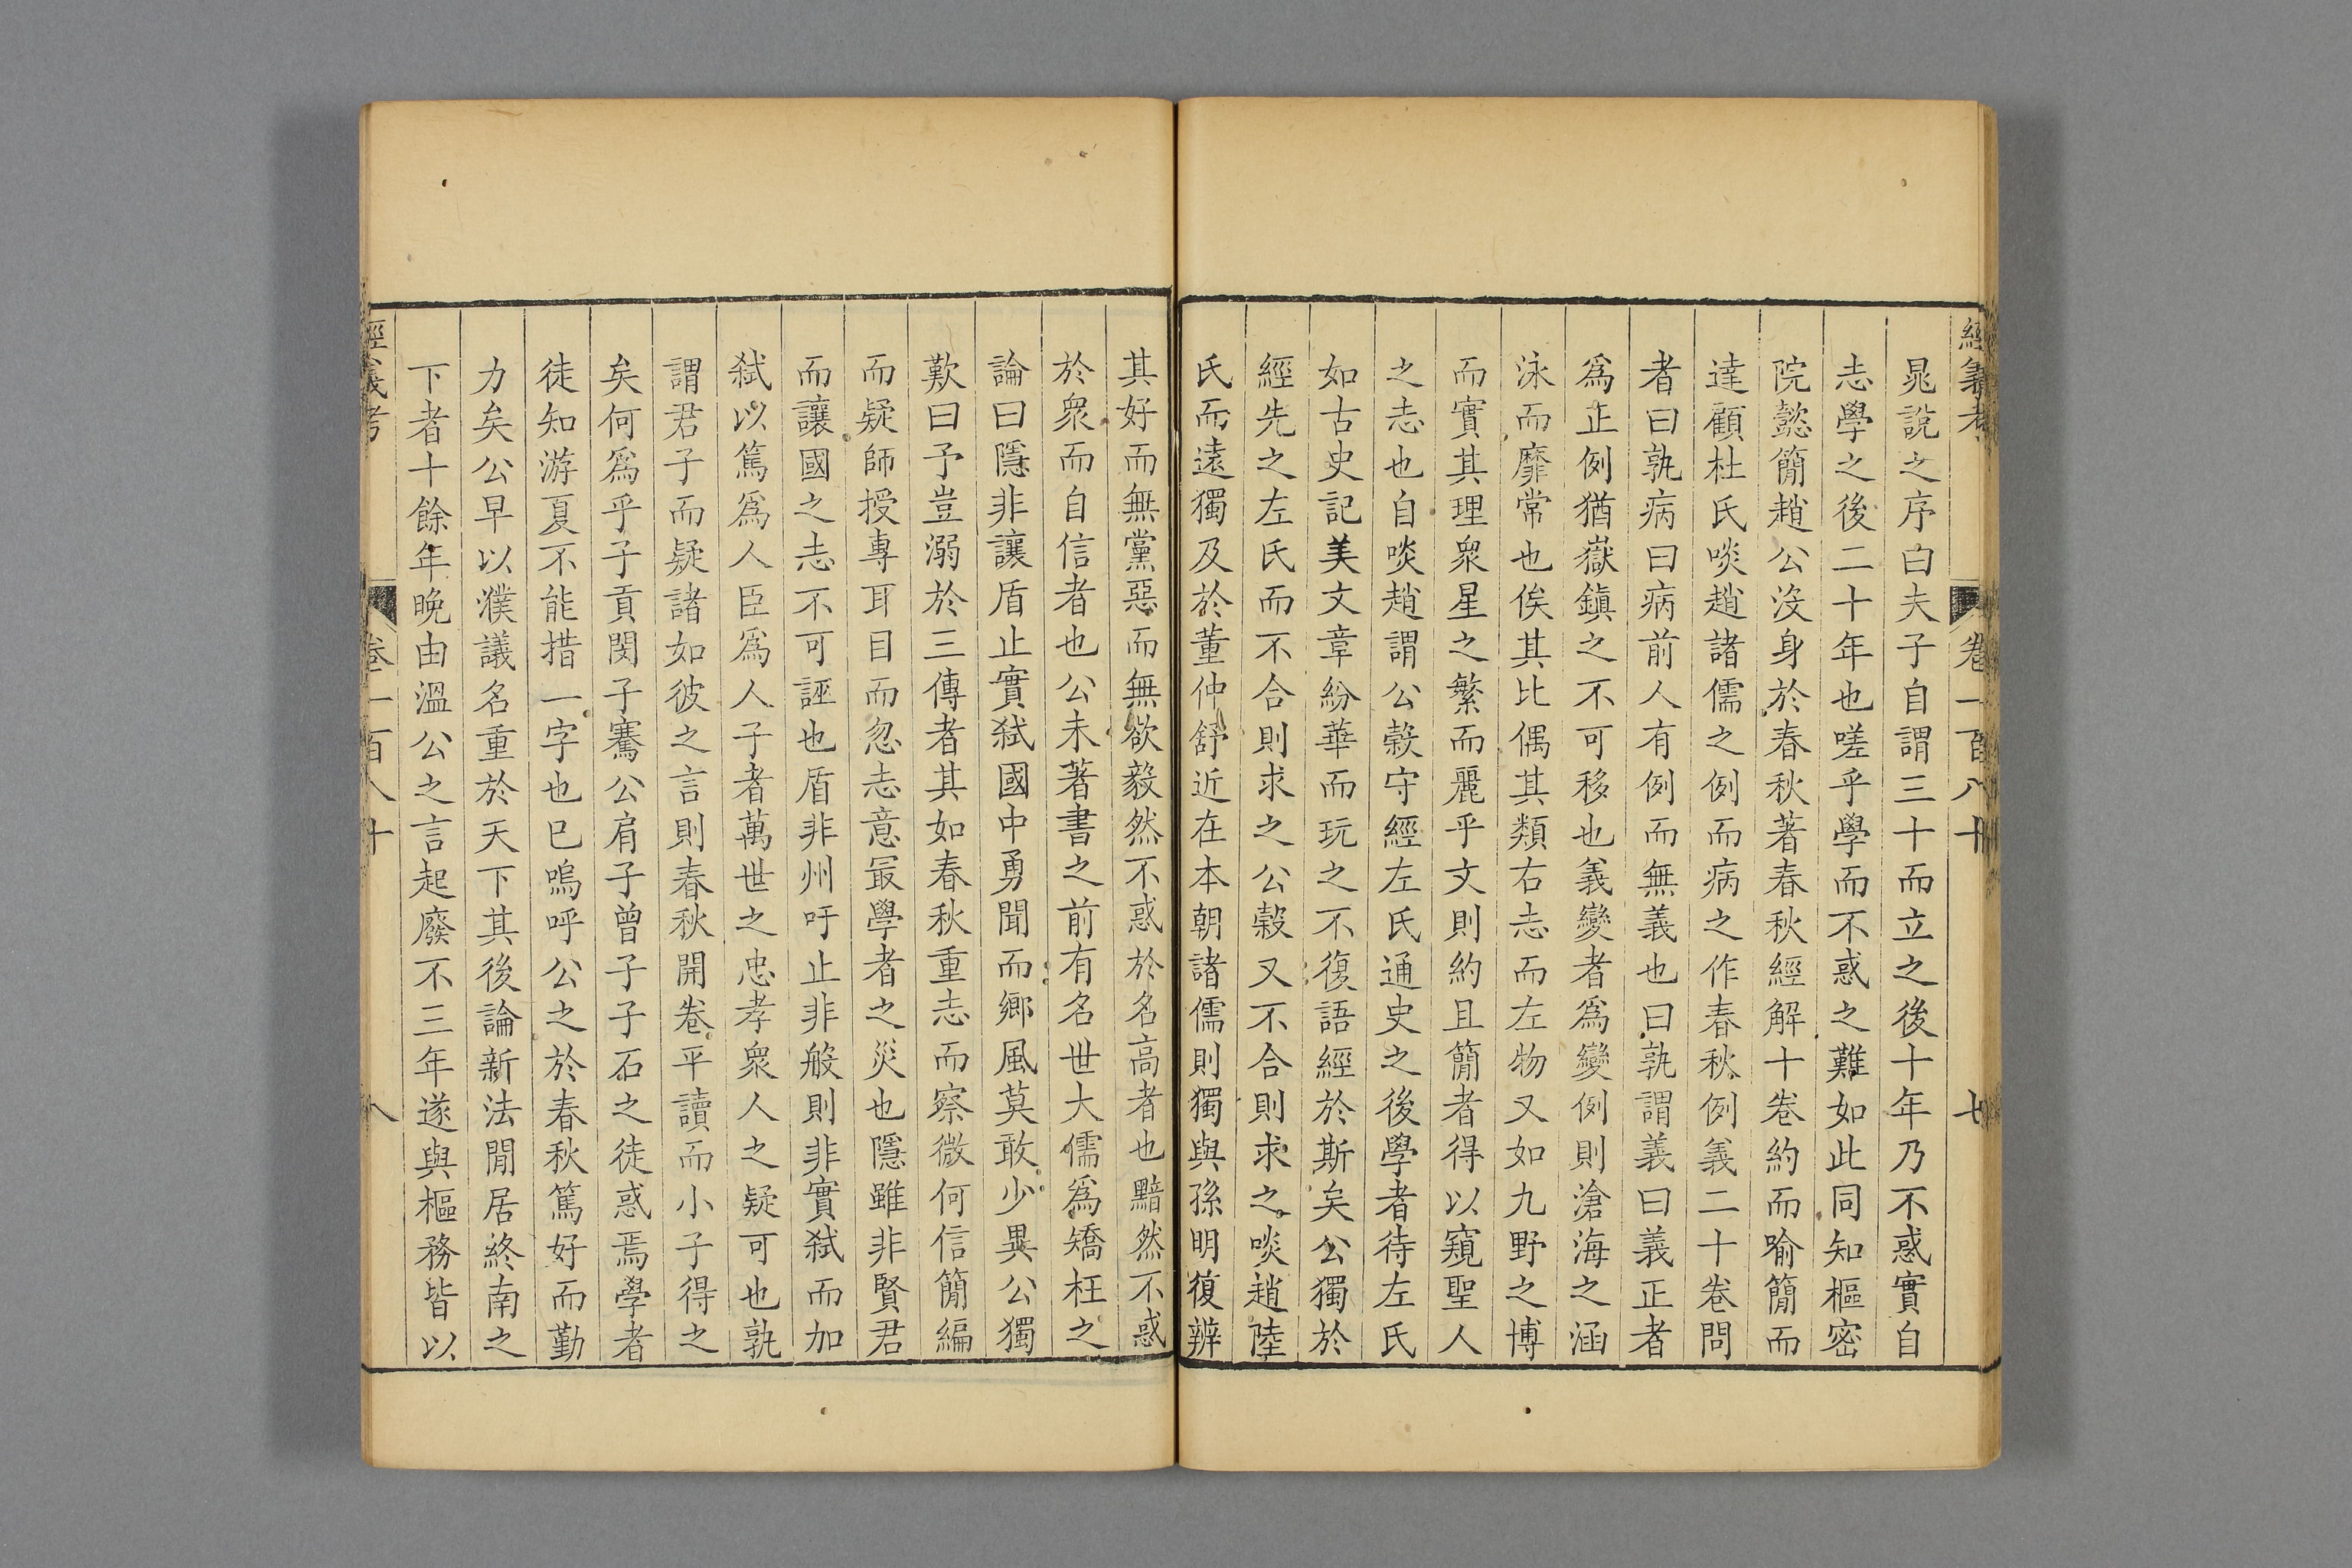 經義考 卷一百八十 七
晁說之序曰夫子自謂三十而立之後十年乃不惑實自
志學之後二十年也嗟乎學而不惑之難如此同知樞密
院懿簡趙公沒身於春秋著春秋經解十卷約而喻簡而
達顧杜氏啖趙諸儒之例而病之作春秋例義二十卷問
者曰孰病曰病前人有例而無義也曰孰謂義曰義正者
爲正例猶嶽鎭之不可移也義變者爲變例則滄海之涵
泳而靡常也俟其比偶其類右志而左物又如九野之博
而實其理衆星之繁而麗乎文則約且簡者得以窺聖人
之志也自啖趙謂公榖守經左氏通史之後學者待左氏
如古史記美文章紛華而玩之不復語經於斯矣公獨於
經先之左氏而不合則求之公榖又不合則求之啖趙陸
氏而遠獨及於董仲舒近在本朝諸儒則獨與孫明復辨
其好而無黨惡而無欲毅然不惑於名高者也黯然不惑
於衆而自信者也公未著書之前有名世大儒爲矯枉之
論曰隱非讓盾止實弑國中勇聞而鄉風莫敢少異公獨
歎曰予豈溺於三傳者其如春秋重志而察微何信簡編
而疑師授專耳目而忽志意冣學者之災也隱雖非賢君
而讓國之志不可誣也盾非州吁止非般則非實弑而加
弑以篤爲人臣爲人子者萬世之忠孝衆人之疑可也孰
謂君子而疑諸如彼之言則春秋開卷平讀而小子得之
矣何爲乎子貢閔子騫公肩子曾子子石之徒惑焉學者
徒知游夏不能措一字也已嗚呼公之於春秋篤好而勤
力矣公早以濮議名重於天下其後論新法閒居終南之
下者十餘年晚由溫公之言起廢不三年遂與樞務皆以
經義考 卷一百八十 八